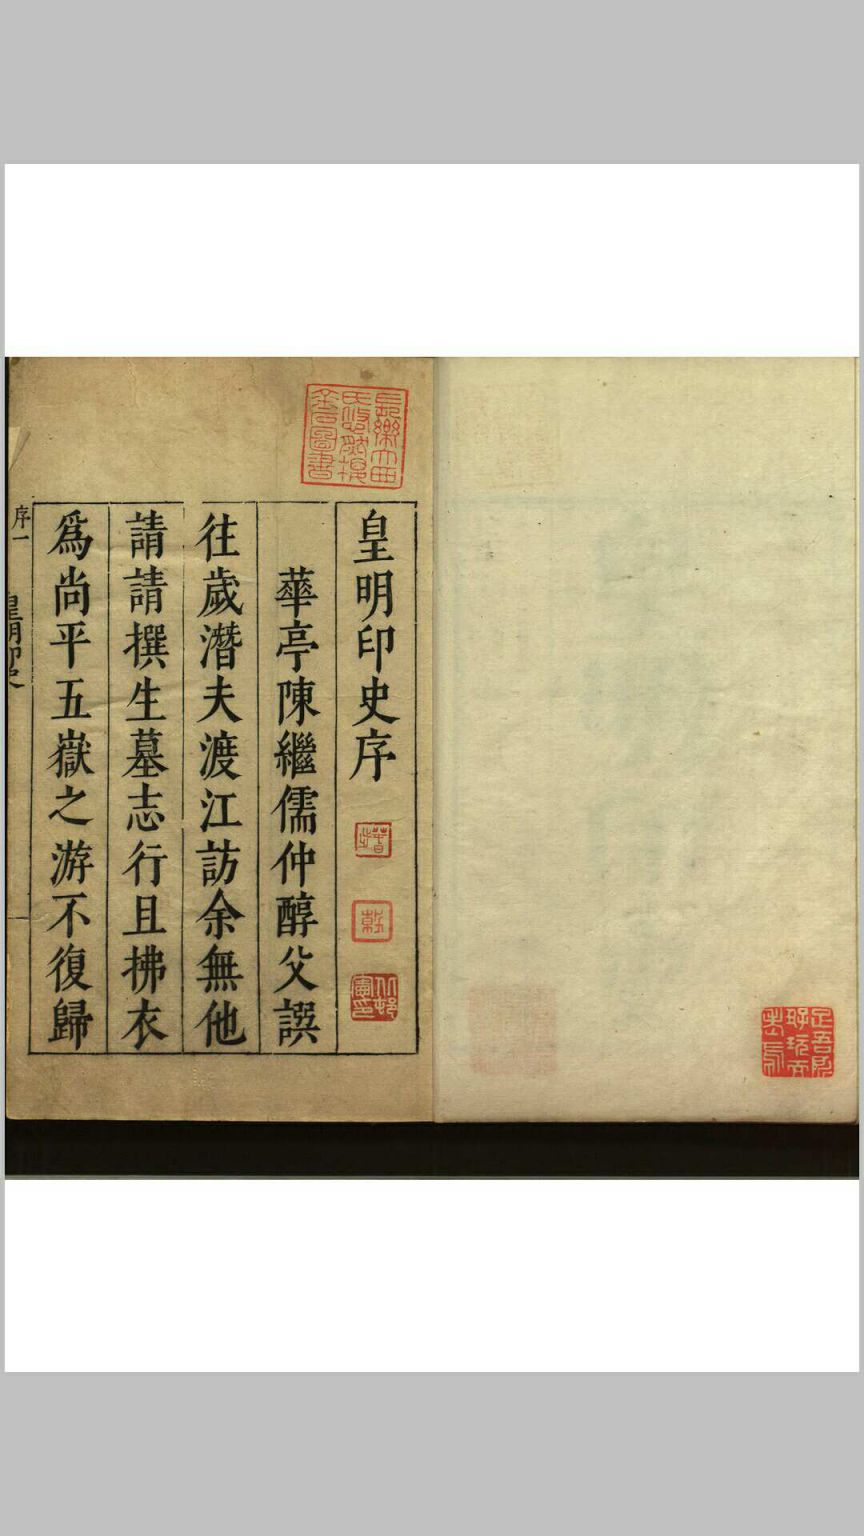 皇明印史序
華亭陳繼儒仲醇父譔
往歲潛夫渡江訪余無他
請請撰生墓志行且拂衣
為尚平五嶽之游不復歸
序一
皇明印史